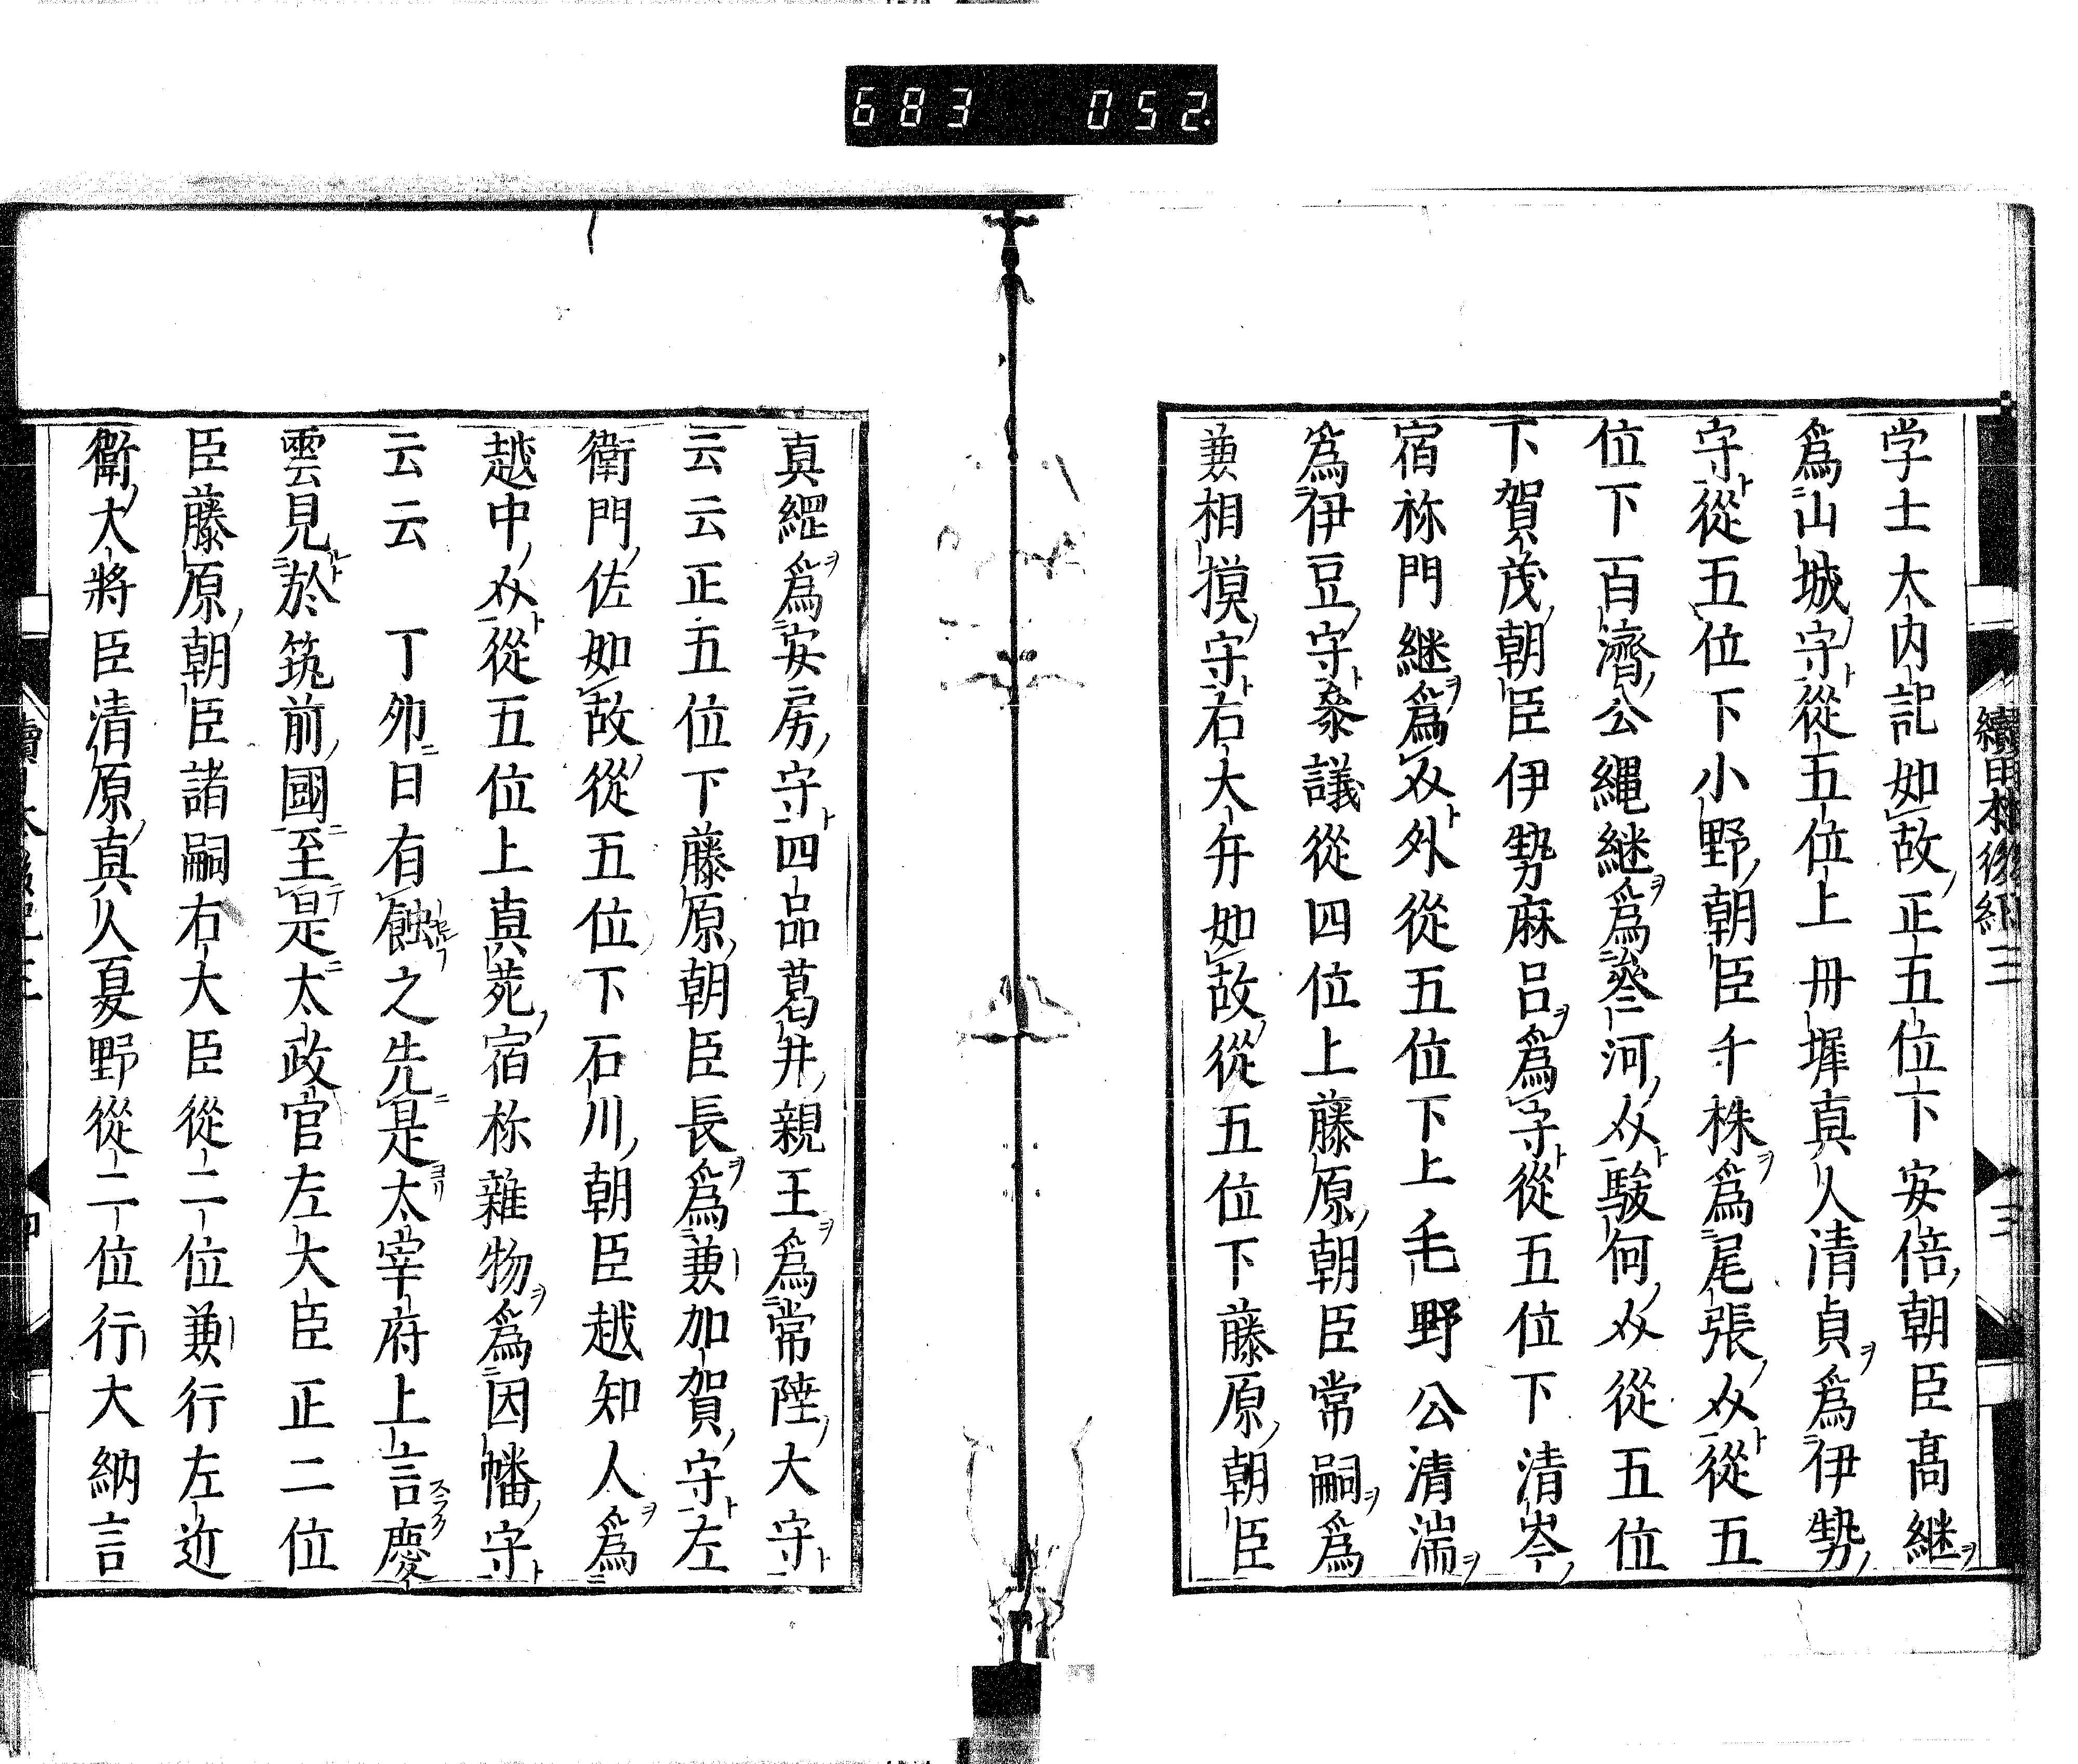 683 052.
続日本後紀三
三
学士大内記如故正五位下安倍朝臣高継
為山城守從五位上丹墀真人清貞為伊勢
守從五位下小野朝臣千株為尾張㕝從五
位下百濟公繩継為叅河㕝駿何㕝從五位
下賀茂朝臣伊勢麻呂為守從五位下清岑
宿祢門継為㕝外從五位下上毛野公清湍
為伊豆守叅議從四位上藤原朝臣常嗣為
兼相摸守右大弁如故從五位下藤原朝臣
真繼為安房守四品葛井親王為常陸大守
云云正五位下藤原朝臣長為兼加賀守左
衛門佐如故從五位下石川朝臣越知人為
越中㕝從五位上真菀宿祢雜物為因幡守
云云　丁夘日有蝕之先是太宰府上言慶
雲見於筑前國至是太政官左大臣正二位
臣藤原朝臣諸嗣右大臣從二位兼行左近
衛大将臣清原真人夏野從二位行大納言